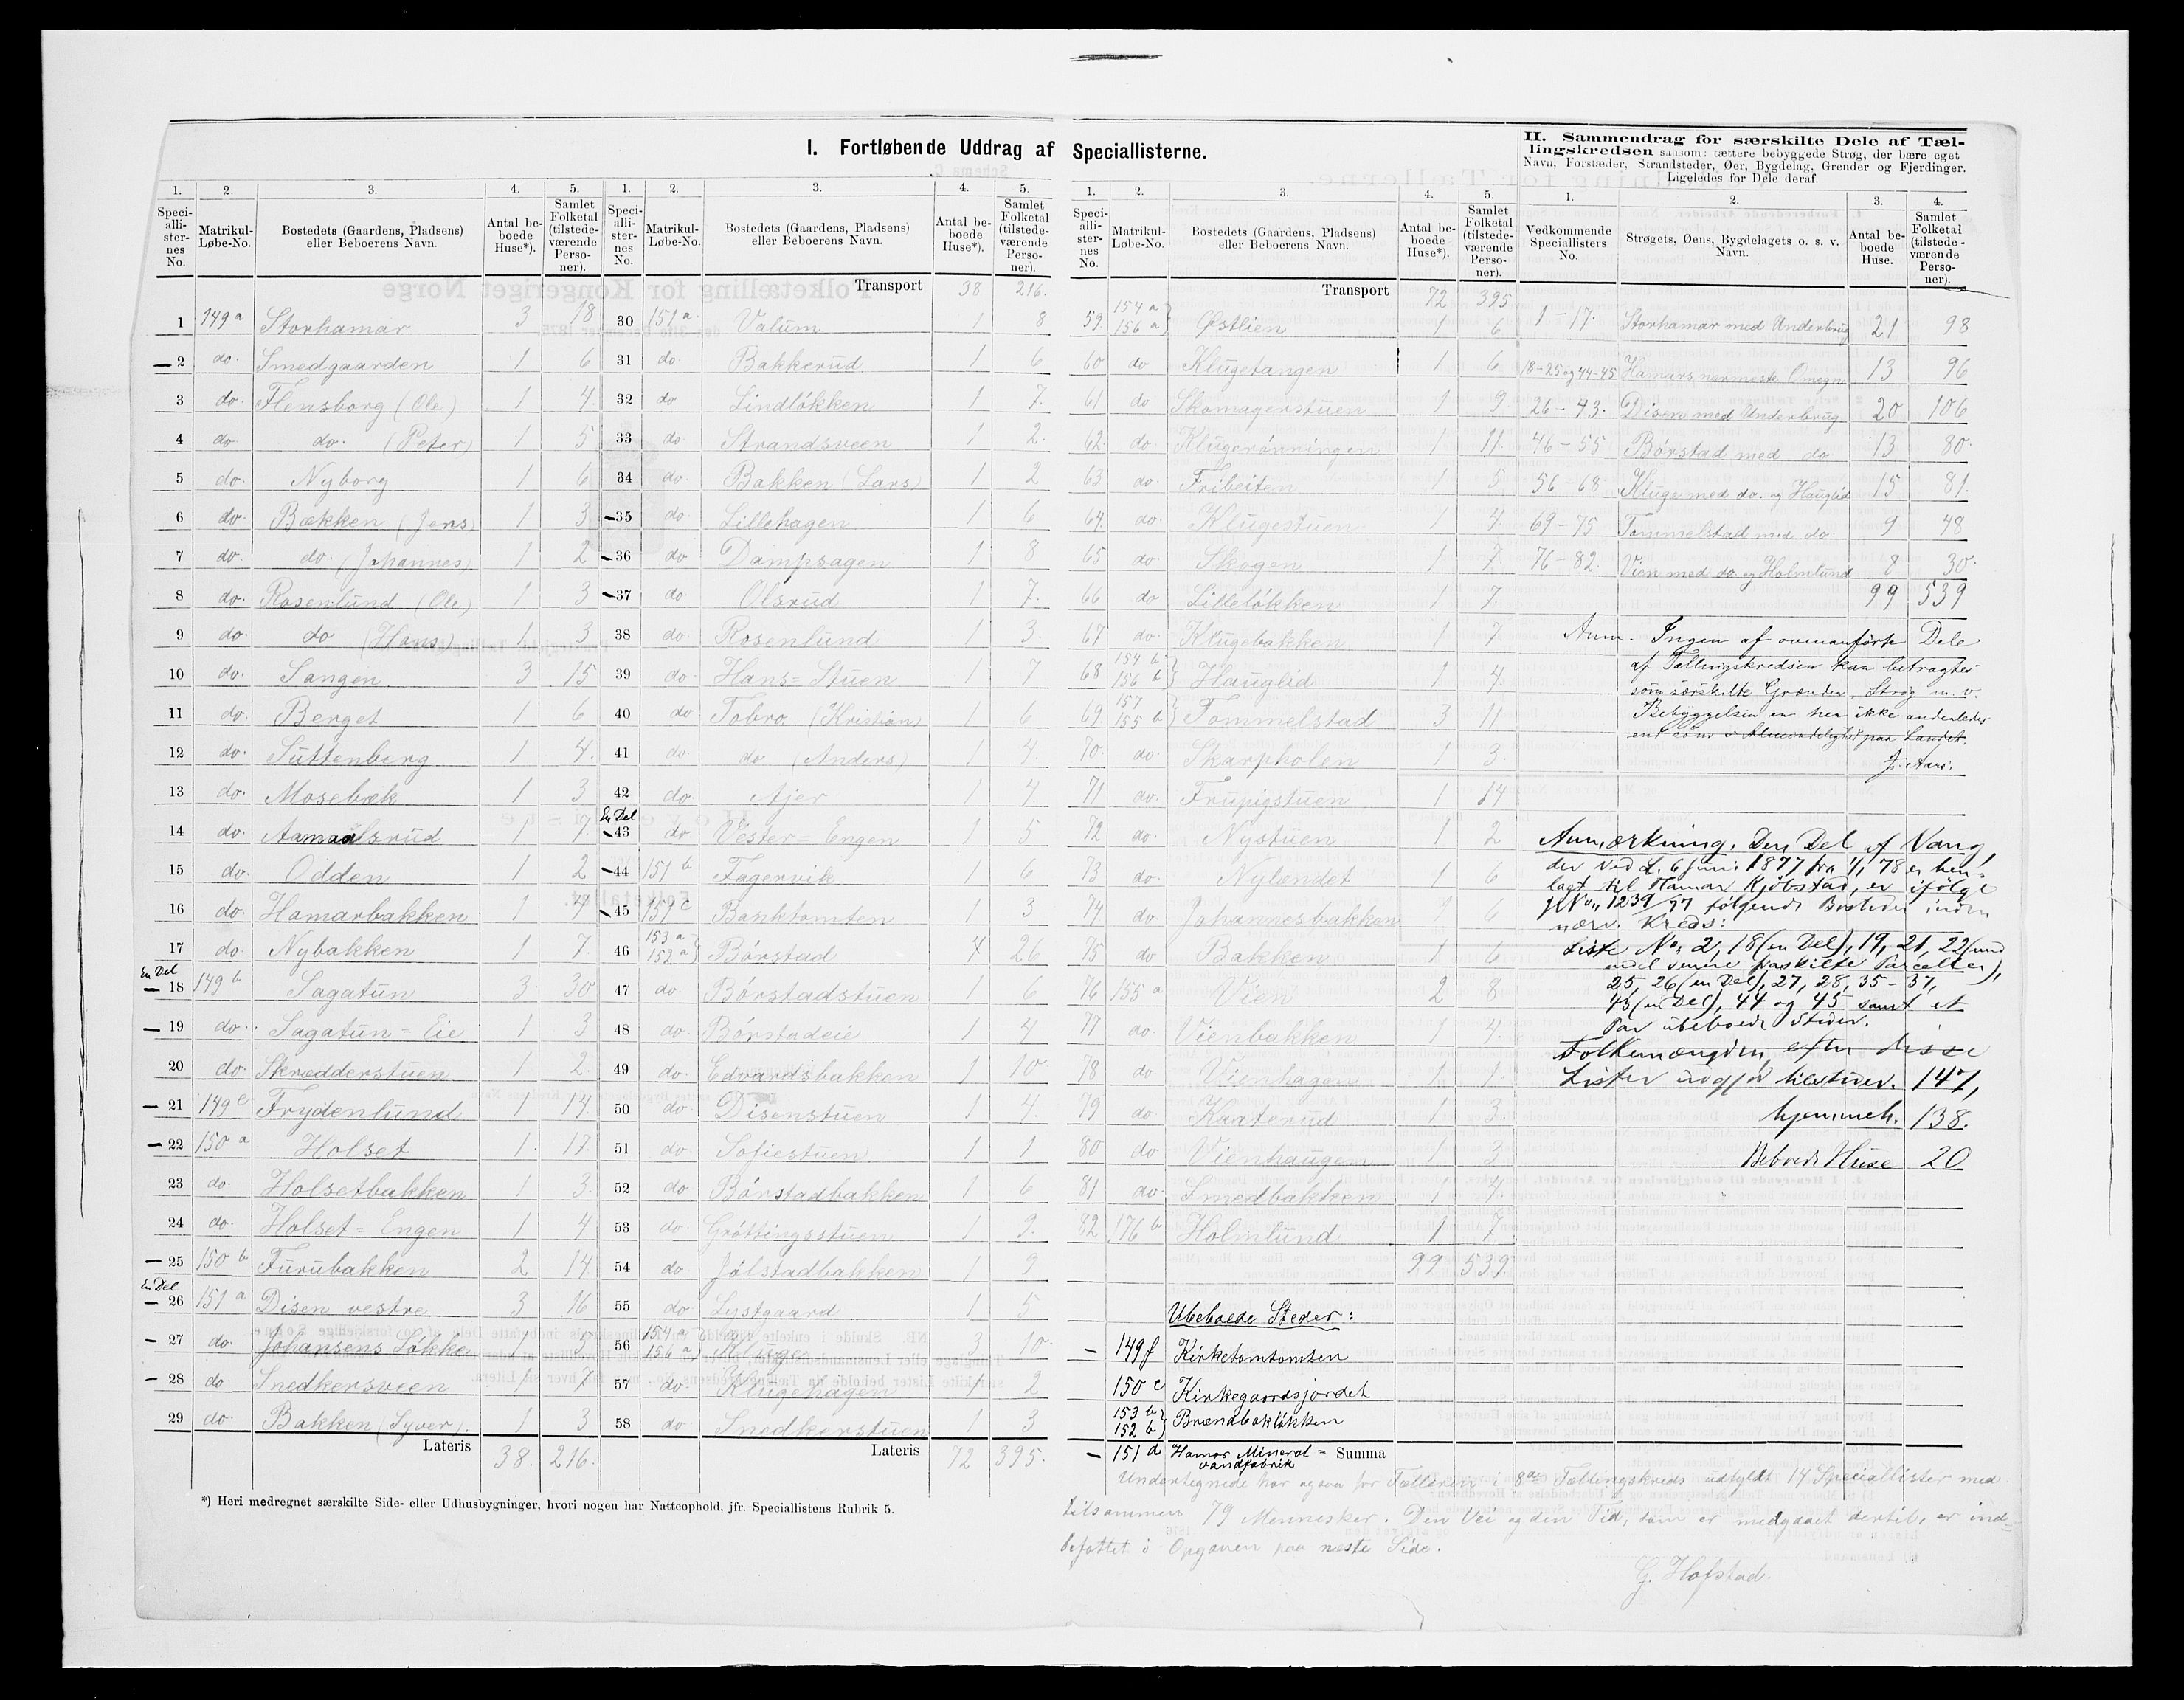 I. Fortløbende Uddrag af Speciallisterne.
II. Sammendrag for særskilte Dele af Tæl-
lingskredsen saasom: tættere bebyggede Strøg, der bære eget
Navn, Forstæder, Strandsteder, Øer, Bygdelag, Grender og Fjerdinger.
Ligeledes for Dele deraf.
1. 2. 3. 4. 5.
Speciallisternes No. Matrikul-Løbe-No. Bostedets (Gaardens, Pladsens) eller Beboerens Navn. Antal beboede Huse*). Samlet Folketal (tilstedeværende Personer).
1 149a Storhamar 3 18
2 do. Smedgaarden 1 6
3 do. Flensborg (Ole) 1 4
4 do. do. (Peter) 1 5
5 do. Nyborg 1 6
6 do. Bækken (Jens) 1 3
7 do. do. (Johannes) 1 2
8 do. Rosenlund (Ole) 1 3
9 do. do (Hans) 1 3
10 do. Sangen 3 15
11 do. Berget 1 6
12 do. Suttenberg 1 4.
13 do. Mosebæk 1 3
14 do. Aamaalsrud 1 7.
15 do. Odden 1 2
16 do. Hamarbakken 1 4
17 do Nybakken 1 7.
En Del
18 149b Sagatun 3 30
19 do. Sagatun=Eie 1 3
20 do. Skrædderstuen 1 2.
21 149e Frydenlund 1 14
22 150a Holset 1. 17.
23 do. Holsetbakken 1 3.
24 do. Holset=Engen 1 4
25 150b Furubakken 2 14
En Del
26 151a Disen vestre 3 16
27 do. Johansens Løkke 1 3
28 do. Snedkersveen 1 7
29 do. Bakken (Syver). 1 3
Lateris 38. 216.
*) Heri medregnet særskilte Side- eller Udhusbygninger, hvori nogen har Natteophold, jfr. Speciallistens Rubrik 5.
1. 2. 3. 4. 5.
Speciallisternes No. Matrikul-Løbe-No. Bostedets (Gaardens, Pladsens) eller Beboerens Navn. Antal beboede Huse*). Samlet Folketal (tilstedeværende Personer).
Transport 38 216.
30 151a Valum 1 8
31 do. Bakkerud 1 6
32 do Lindløkken 1 7.
33 do Strandsveen 1 2.
34 do. Bakken (Lars) 1 2
35 do. Lillehagen 1 6
36 do Dampsagen 1 8
37 do Olsrud 1 7.
38 do. Rosenlund 1 3.
39 do. Hans=Stuen 1 7
40 do Tobro (Kristian) 1 6
41 do. do (Anders) 1 4.
42 do Ajer 1 4.
En Del
43 do Vester=Engen 1 5
44 151b Fagervik 6
45 151c Banktomten 3
46 153a 152a Børstad 4 26
47 do Børstadstuen 1 6
48 do. Børstadeie 1 4
49 do. Edvardsbakken 1 10
50 do. Disenstuen 1 4
51 do. Sofiestuen 1 1
52 do. Børstadbakken 1 6
53 do. Grøttingsstuen 1 9.
54 do. Jølstadbakken 1 9
55 do Lystgaard 1 5
56 154a 156a Kluge 3 10.
57 do. Klugehagen 1 2
58 do. Snedkerstuen 1 3
Lateris 72 395.
1. 2. 3. 4. 5.
Speciallisternes No. Matrikul-Løbe-No. Bostedets (Gaardens, Pladsens) eller Beboerens Navn. Antal beboede Huse*). Samlet Folketal (tilstedeværende Personer).
Transport 72 395
59. 154a 156a Østlien 1 6
60 do Klugetangen 1 6
61 do Skomagerstuen 1 9
62. do Klugerønningen 1 11.
63 do. Fribeiten 1 5
64. do. Klugestuen 1 4.
65 do. Skogen 1 7.
66 do Lilleløkken 1 7.
67 do. Klugebakken 1 7
68 154b 156b Hauglid 1 4.
69. 157 155b Tommelstad 3 11
70. do. Skarpholen 1 3.
71 do. Frupigstuen 1 14
72 do. Nystuen 1 2
73 do. Nylendet 1 6
74 do Johannesbakken 1 6
75 do Bakken 1 6
76 155a Vien 2 8
77 do. Vienbakken 1 4.
78 do Vienhagen 1 1.
79 do Kaaterud 1 3.
80 do Vienhaugen 1 3
81 do. Smedbakken 1 4.
82 176b Holmlund 1 7
99 539.
Ubeboede Steder:
149f Kirketomtomten
150c Kirkegaardsjordet
153b 152b Brændbækløkken
151d Hamar Mineral=
vandfabrik
Summa
1. 2. 3. 4.
Vedkommende Speciallisters No. Strøgets, Øens, Bygdelagets o. s. v. Navn. Antal beboede Huse. Samlet Folketal (tilstedeværende Personer).
1-17. Storhamar med Underbrug 21 98
18-25 og 44-45 Hamars nærmeste Omegn 13 96
26-43. Disen med Underbrug 20 106
46-55 Børstad med do 13 80.
56-68 Kluge med do. og Hauglid 15 81
69-75 Tommelstad med do. 9 48
76-82. Vien med do. og Holmlund 8 30.
99 539
Anm. Ingen af ovenanførte Dele
af Tællingskredsen kan betragtes
som særskilte Grender, Strøg m. v.
Bebyggelsen er her ikke anderledes
end som i Almindelighed paa Landet.
J. Aars.
Anmærkning. Den Del af Vang,
der ved L. 6 Juni 1877 fra 1/1 78 er hen-
lagt til Hamar Kjøbstad, er ifølge
JNo. 1239/77 følgende Bosteder inden
nærv. Kreds:
Liste No. 2, 18 (en Del), 19, 21, 22 (und
endel senere fraskilte Parceller),
25, 26 (en Del), 27, 28, 35-37,
43 (en Del), 44 og 45 samt et
Par ubeboede Steder.
Folkemængden efter disse
Lister udgjør tilstedev. 147,
hjemmeh. 138.
Beboede Huse 20
Undertegnede har ogsaa for Tælleren i 8de Tællingskreds udfyldt 14 Speciallister med
tilsammen 79 Mennesker. Den Vei og den Tid, som er medgaaet dertil, er ind-
befattet i Opgaven paa næste Side.
G. Hofstad.